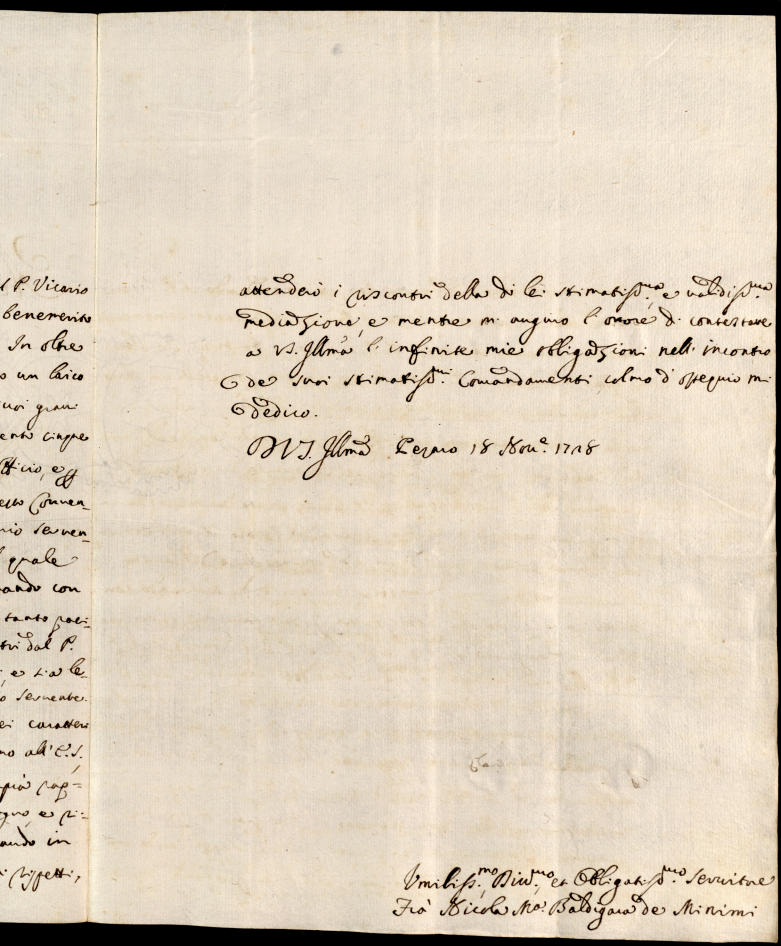 l P. Vicario
benemerito
In oltre
o un laico
suoi gravi
cento cinque
fficio, e
esto Conven=
nio serven=
l quale
mando con
tanto pati=
tri dal P.
e sia le=
o servente.
ei caratteri
no all' E.S.
pia rap=
gno, e ri=
ando in
i rispetti,
attenderò i riscontri della di lei stimatiss.ma, e validiss.ma
mediazione, e mentre mi auguro l'onore di contestare
a VS. Illma l'infinite mie obligazioni nell'incontro
de suoi stimatiss.mi Comandamenti colmo d'ossequio mi
dedico.
D VS. Illma Pesaro 18 Nov.e 1718
Umiliss.mo Div.mo, et Obligatiss.mo Servitore
Frà Nicola Ma. Baldigara de Minimi